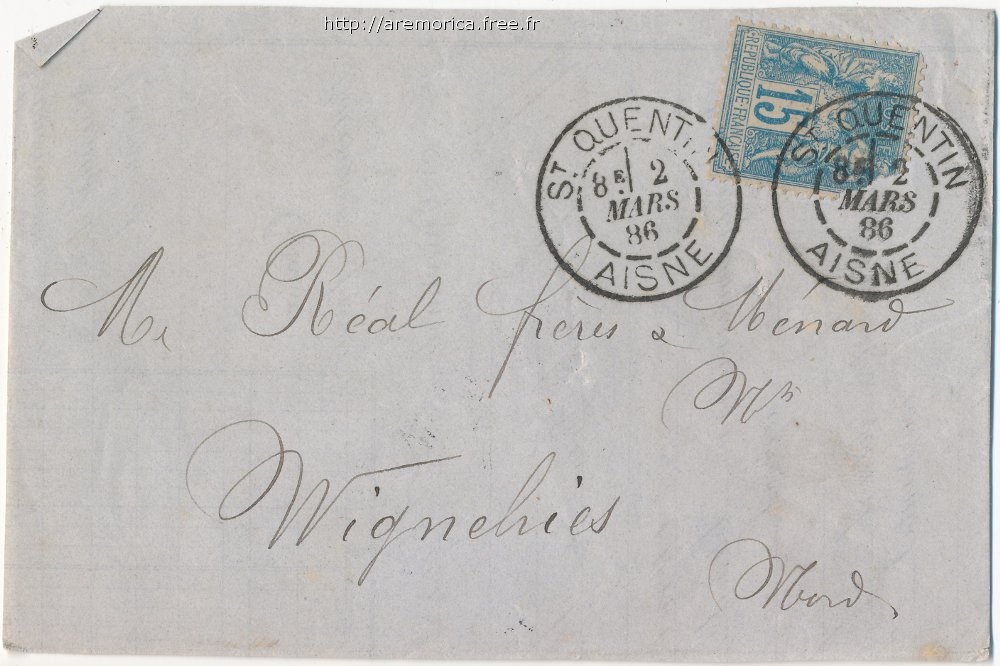 http://aremorica.free.fr
REPUBLIQUE FRANCAISE
15
ST QUENTIN
8E 2
MARS
86
AISNE
ST QUENTIN
8E 2
MARS
86
AISNE
Mr Réal frères & Ménard
Wignehies
Nord